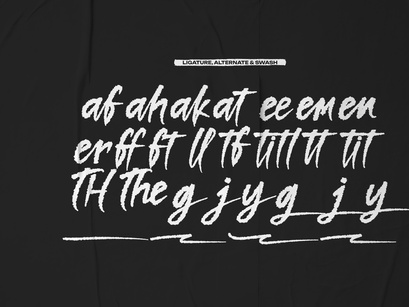 LIGATURE, ALTERNATE & SWASH
af ah ak at ee em en
er ff ft ll tf titl tt tit
TH The g j y g j y